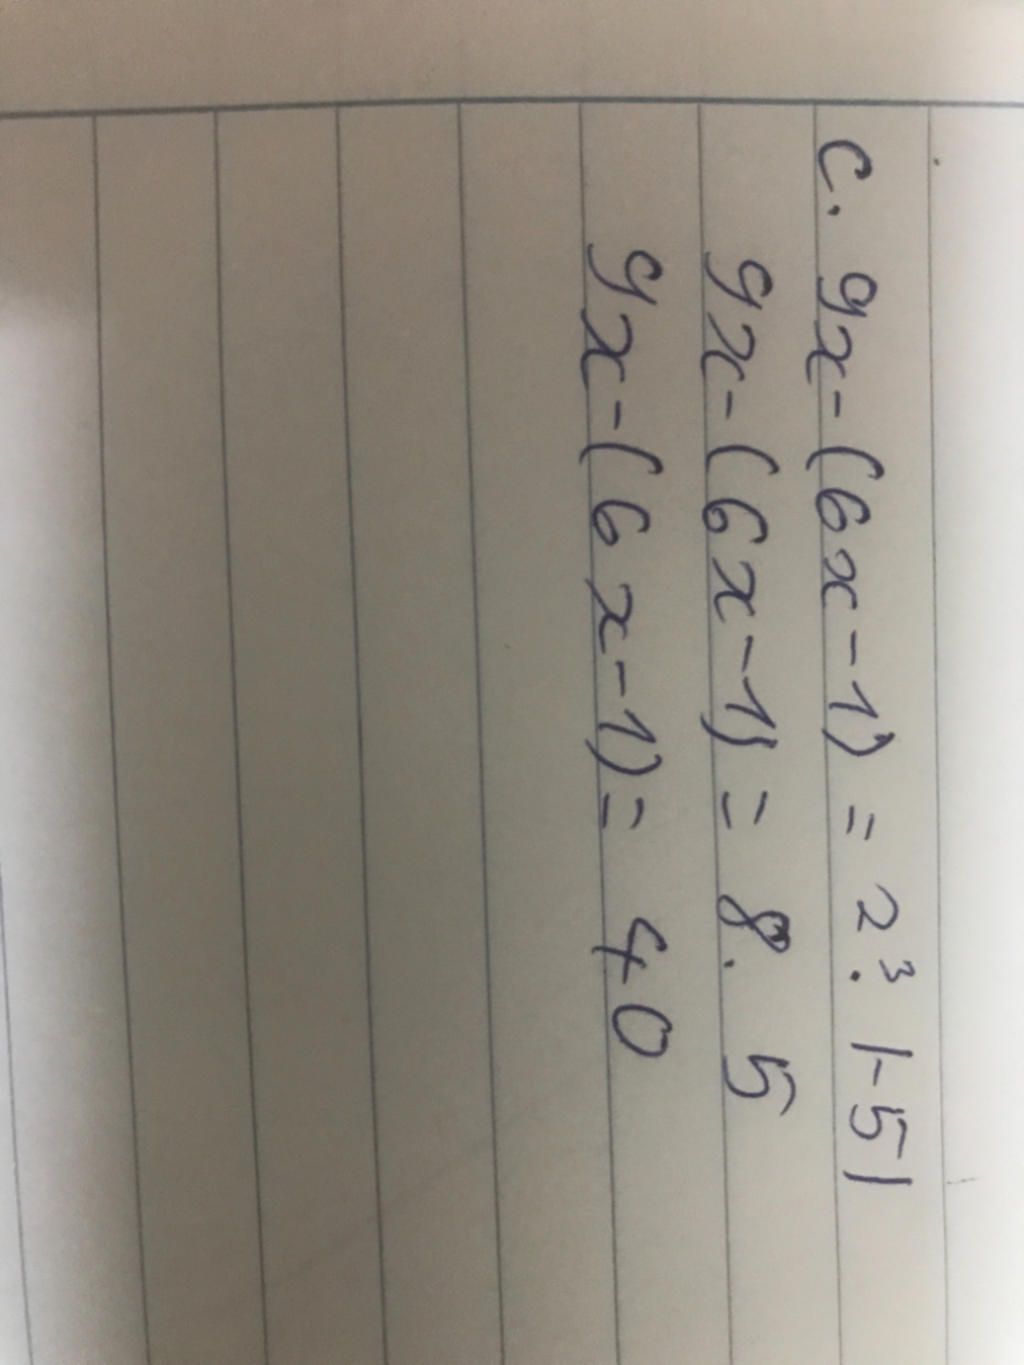 c. 9x-(6x-1) = 2³. |-5|
9x-(6x-1) = 8. 5
9x-(6x-1) = 40